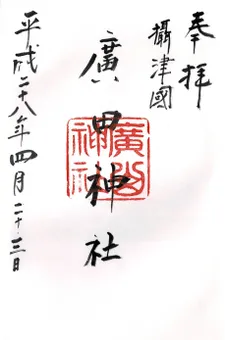 奉拝
攝津國
廣田神社
平成二十八年四月二十三日
廣田
神社